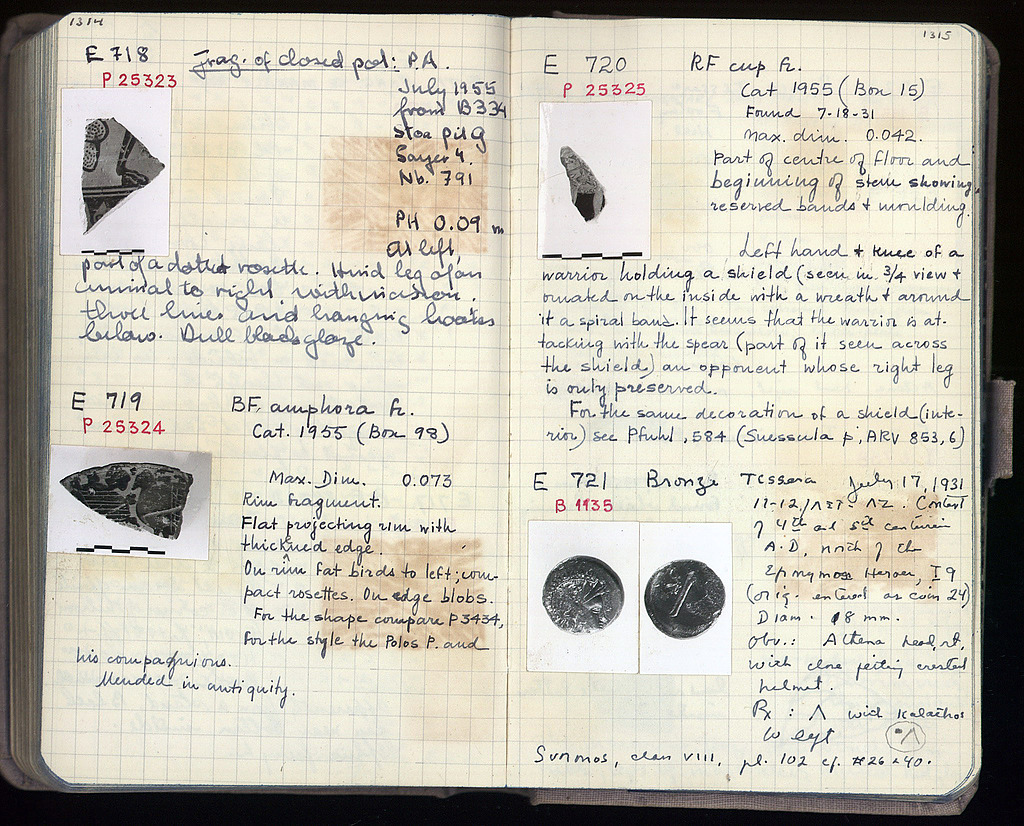 1314
E 718 Frag. of closed pot: P.A.
P 25323
July 1955
from B 334
Stoa pit G
Nb. 791
PH 0.09 m
At left,
part of a dotted rosette. Hind leg of an
animal to right, with incision.
three lines and hanging hooks
below. Dull black glaze.
E 719 BF. amphora fr.
P 25324
Cat. 1955 (Box 98)
Max. Dim. 0.073
Rim fragment.
Flat projecting rim with
thickned edge.
On rim fat birds to left; com-
pact rosettes. On edge blobs.
For the shape compare P 3434,
for the style the Polos P. and
his compagnions.
Mended in antiquity.
1315
E 720 RF cup fr.
P 25325
Cat 1955 (Box 15)
Found 7-18-31
Max. dim. 0.042.
Part of centre of floor and
beginning of stem showing
reserved bands + moulding.
Left hand + knee of a
warrior holding a shield (seen in 3/4 view +
ornated on the inside with a wreath + around
it a spiral band. It seems that the warrior is at-
tacking with the spear (part of it seen across
the shield) an opponent whose right leg
is only preserved.
For the same decoration of a shield (inte-
rior) see Pfuhl, 584 (Suessula p, ARV 853,6)
E 721 Bronze Tessera July 17, 1931
B 1135
Context
of 4th and 5th centuries
A.D., north of the
Eponymos Heroes, I 9
(orig. entered as coin 24)
Diam. 18 mm.
Obv.: Athena head, rt.
with close fitting crested
helmet.
Rx: Λ with Kalathos
to left
Λ
Svoronos, class VIII, pl. 102 cf. #26-40.